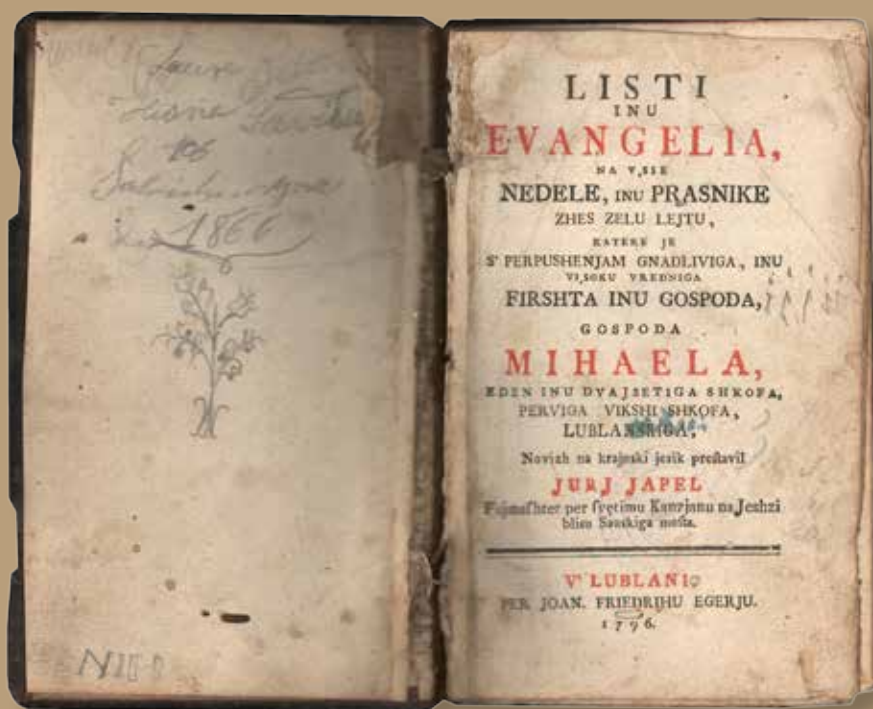 1866
LISTI
INU
EVANGELIA,
NA VSSE
NEDELE, INU PRASNIKE
ZHES ZELU LEJTU,
KATERE JE
S' PERPUSHENJAM GNADLIVIGA, INU
VISSOKU VREDNIGA
FIRSHTA INU GOSPODA,
GOSPODA
MIHAELA,
EDEN INU DVAJSETIGA SHKOFA,
PERVIGA VIKSHI SHKOFA,
LUBLANSKIGA,
Novizh na krajnski jesik preſtavil
JURJ JAPEL
Fajmaſhter per ſvetimu Kanzjanu na Jeshzi
blisu Sauskiga moſta.
V' LUBLANI,
PER JOAN. FRIEDRIHU EGERJU.
1796.